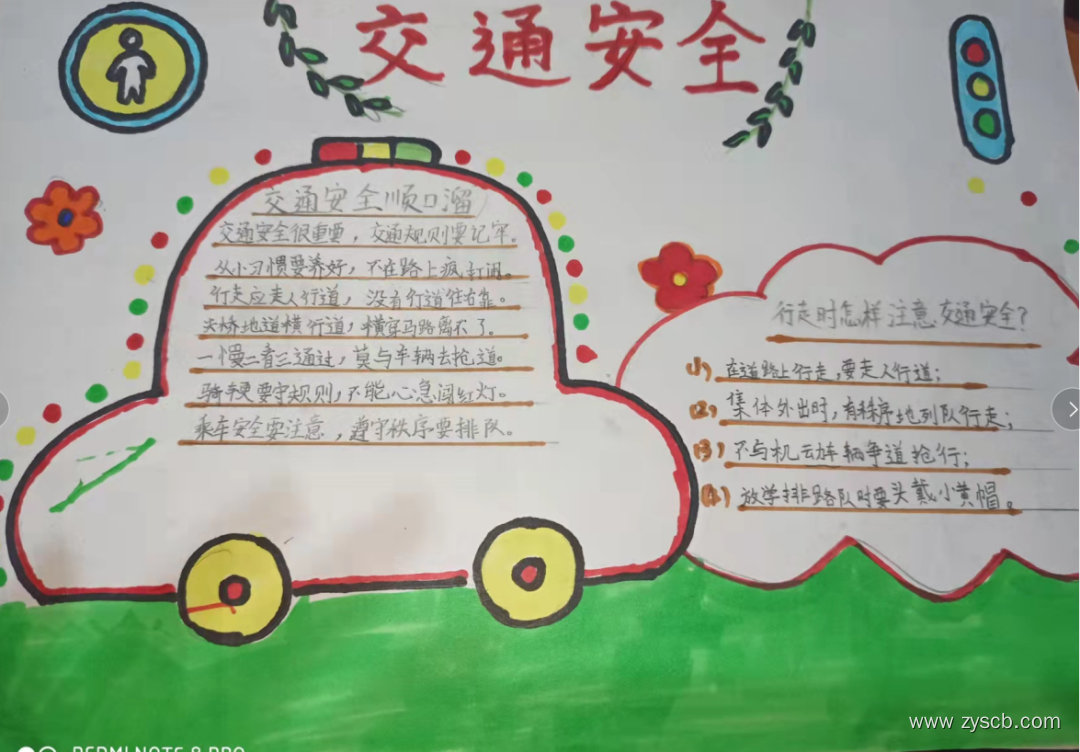 交通安全
交通安全顺口溜
交通安全很重要，交通规则要记牢。
从小习惯要养好，不在路上疯打闹。
行走应走人行道，没有行道往右靠。
天桥地道横行道，横穿马路离不了。
一慢二看三通过，莫与车辆去抢道。
骑车更要守规则，不能心急闯红灯。
乘车安全要注意，遵守秩序要排队。
行走时怎样注意交通安全？
(1)在道路上行走，要走人行道；
(2)集体外出时，有秩序地列队行走；
(3)不与机动车辆争道抢行；
(4)放学排路队时要头戴小黄帽。
www.zyscb.com
REDMI NOTE 8 PRO